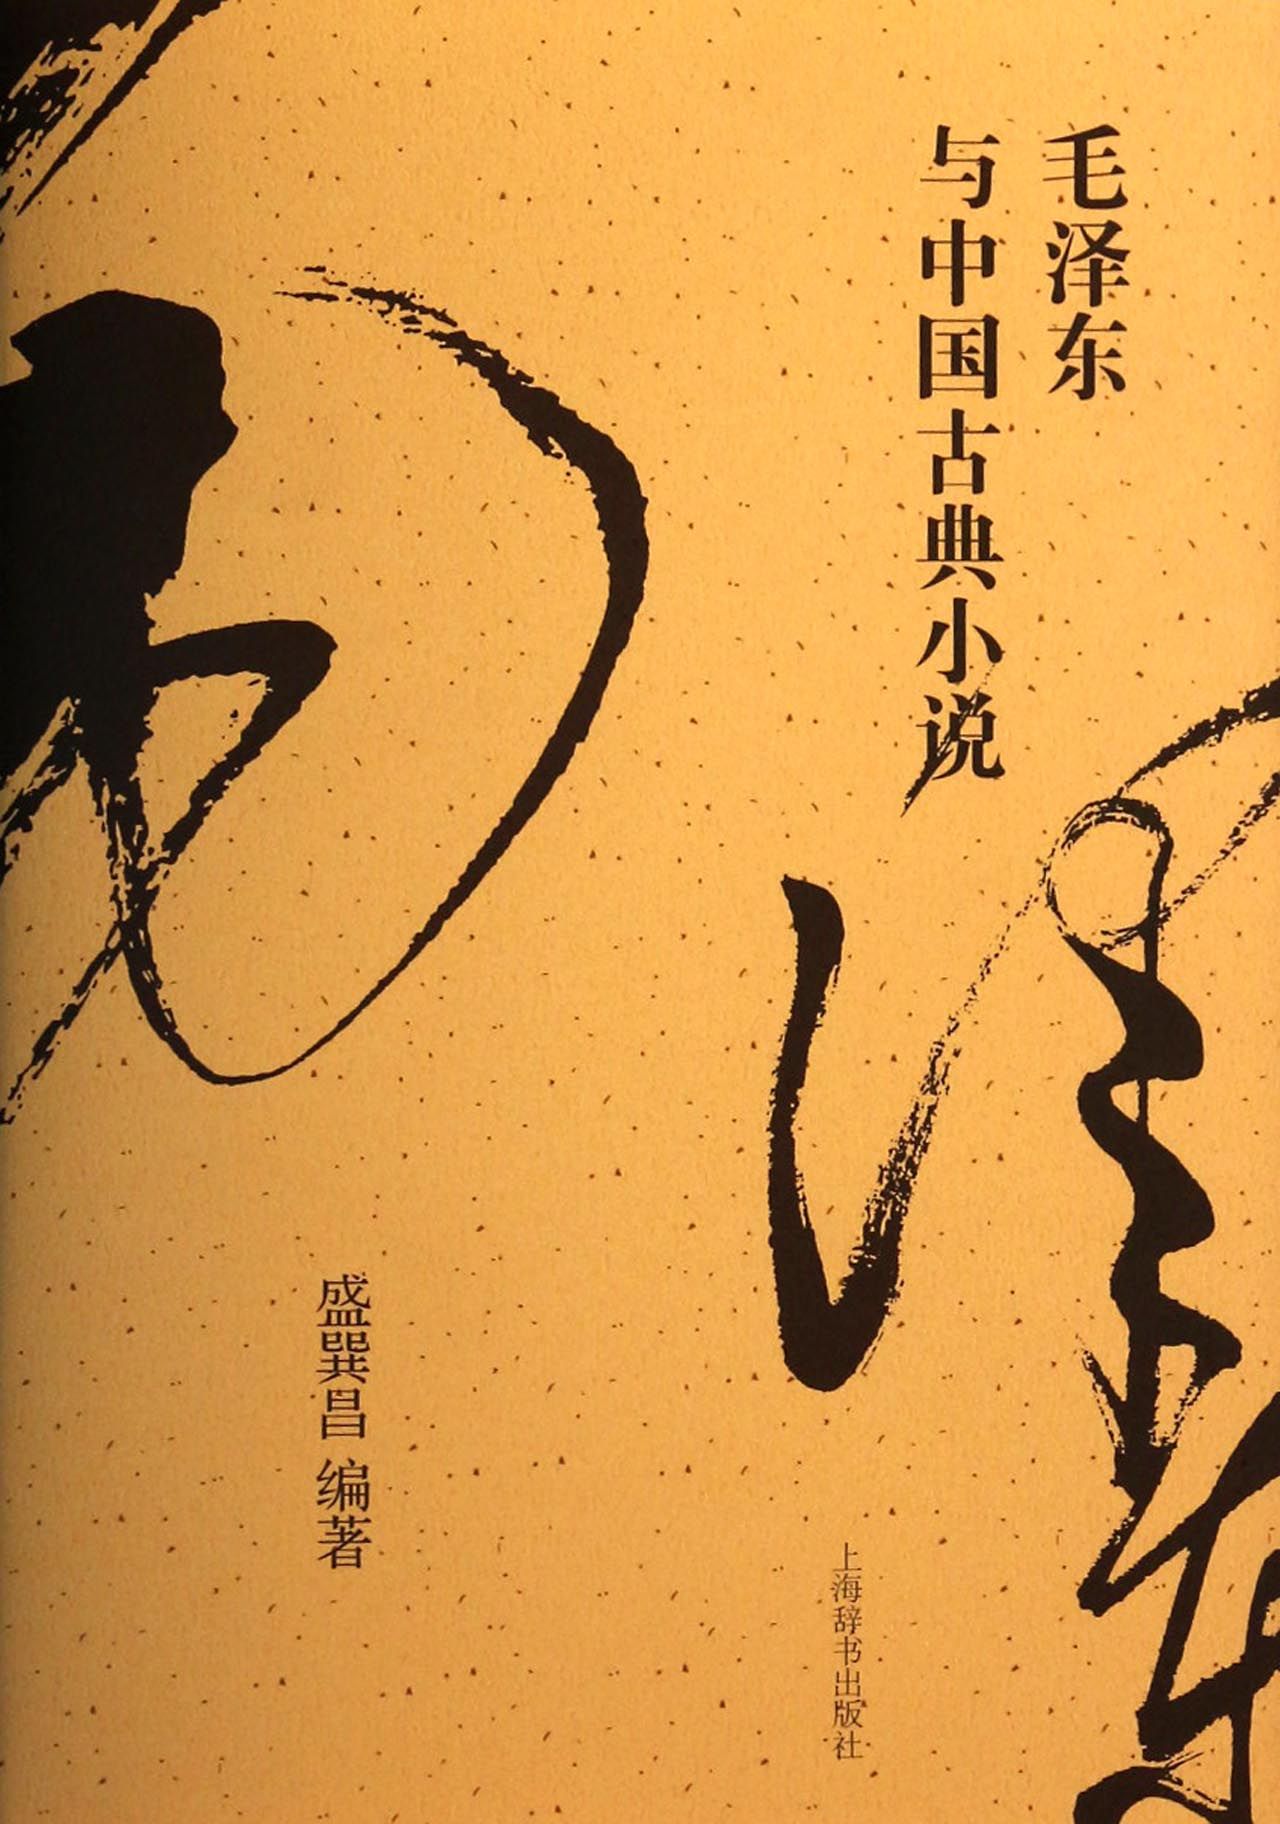 毛泽东
与中国古典小说
盛巽昌 编著
上海辞书出版社